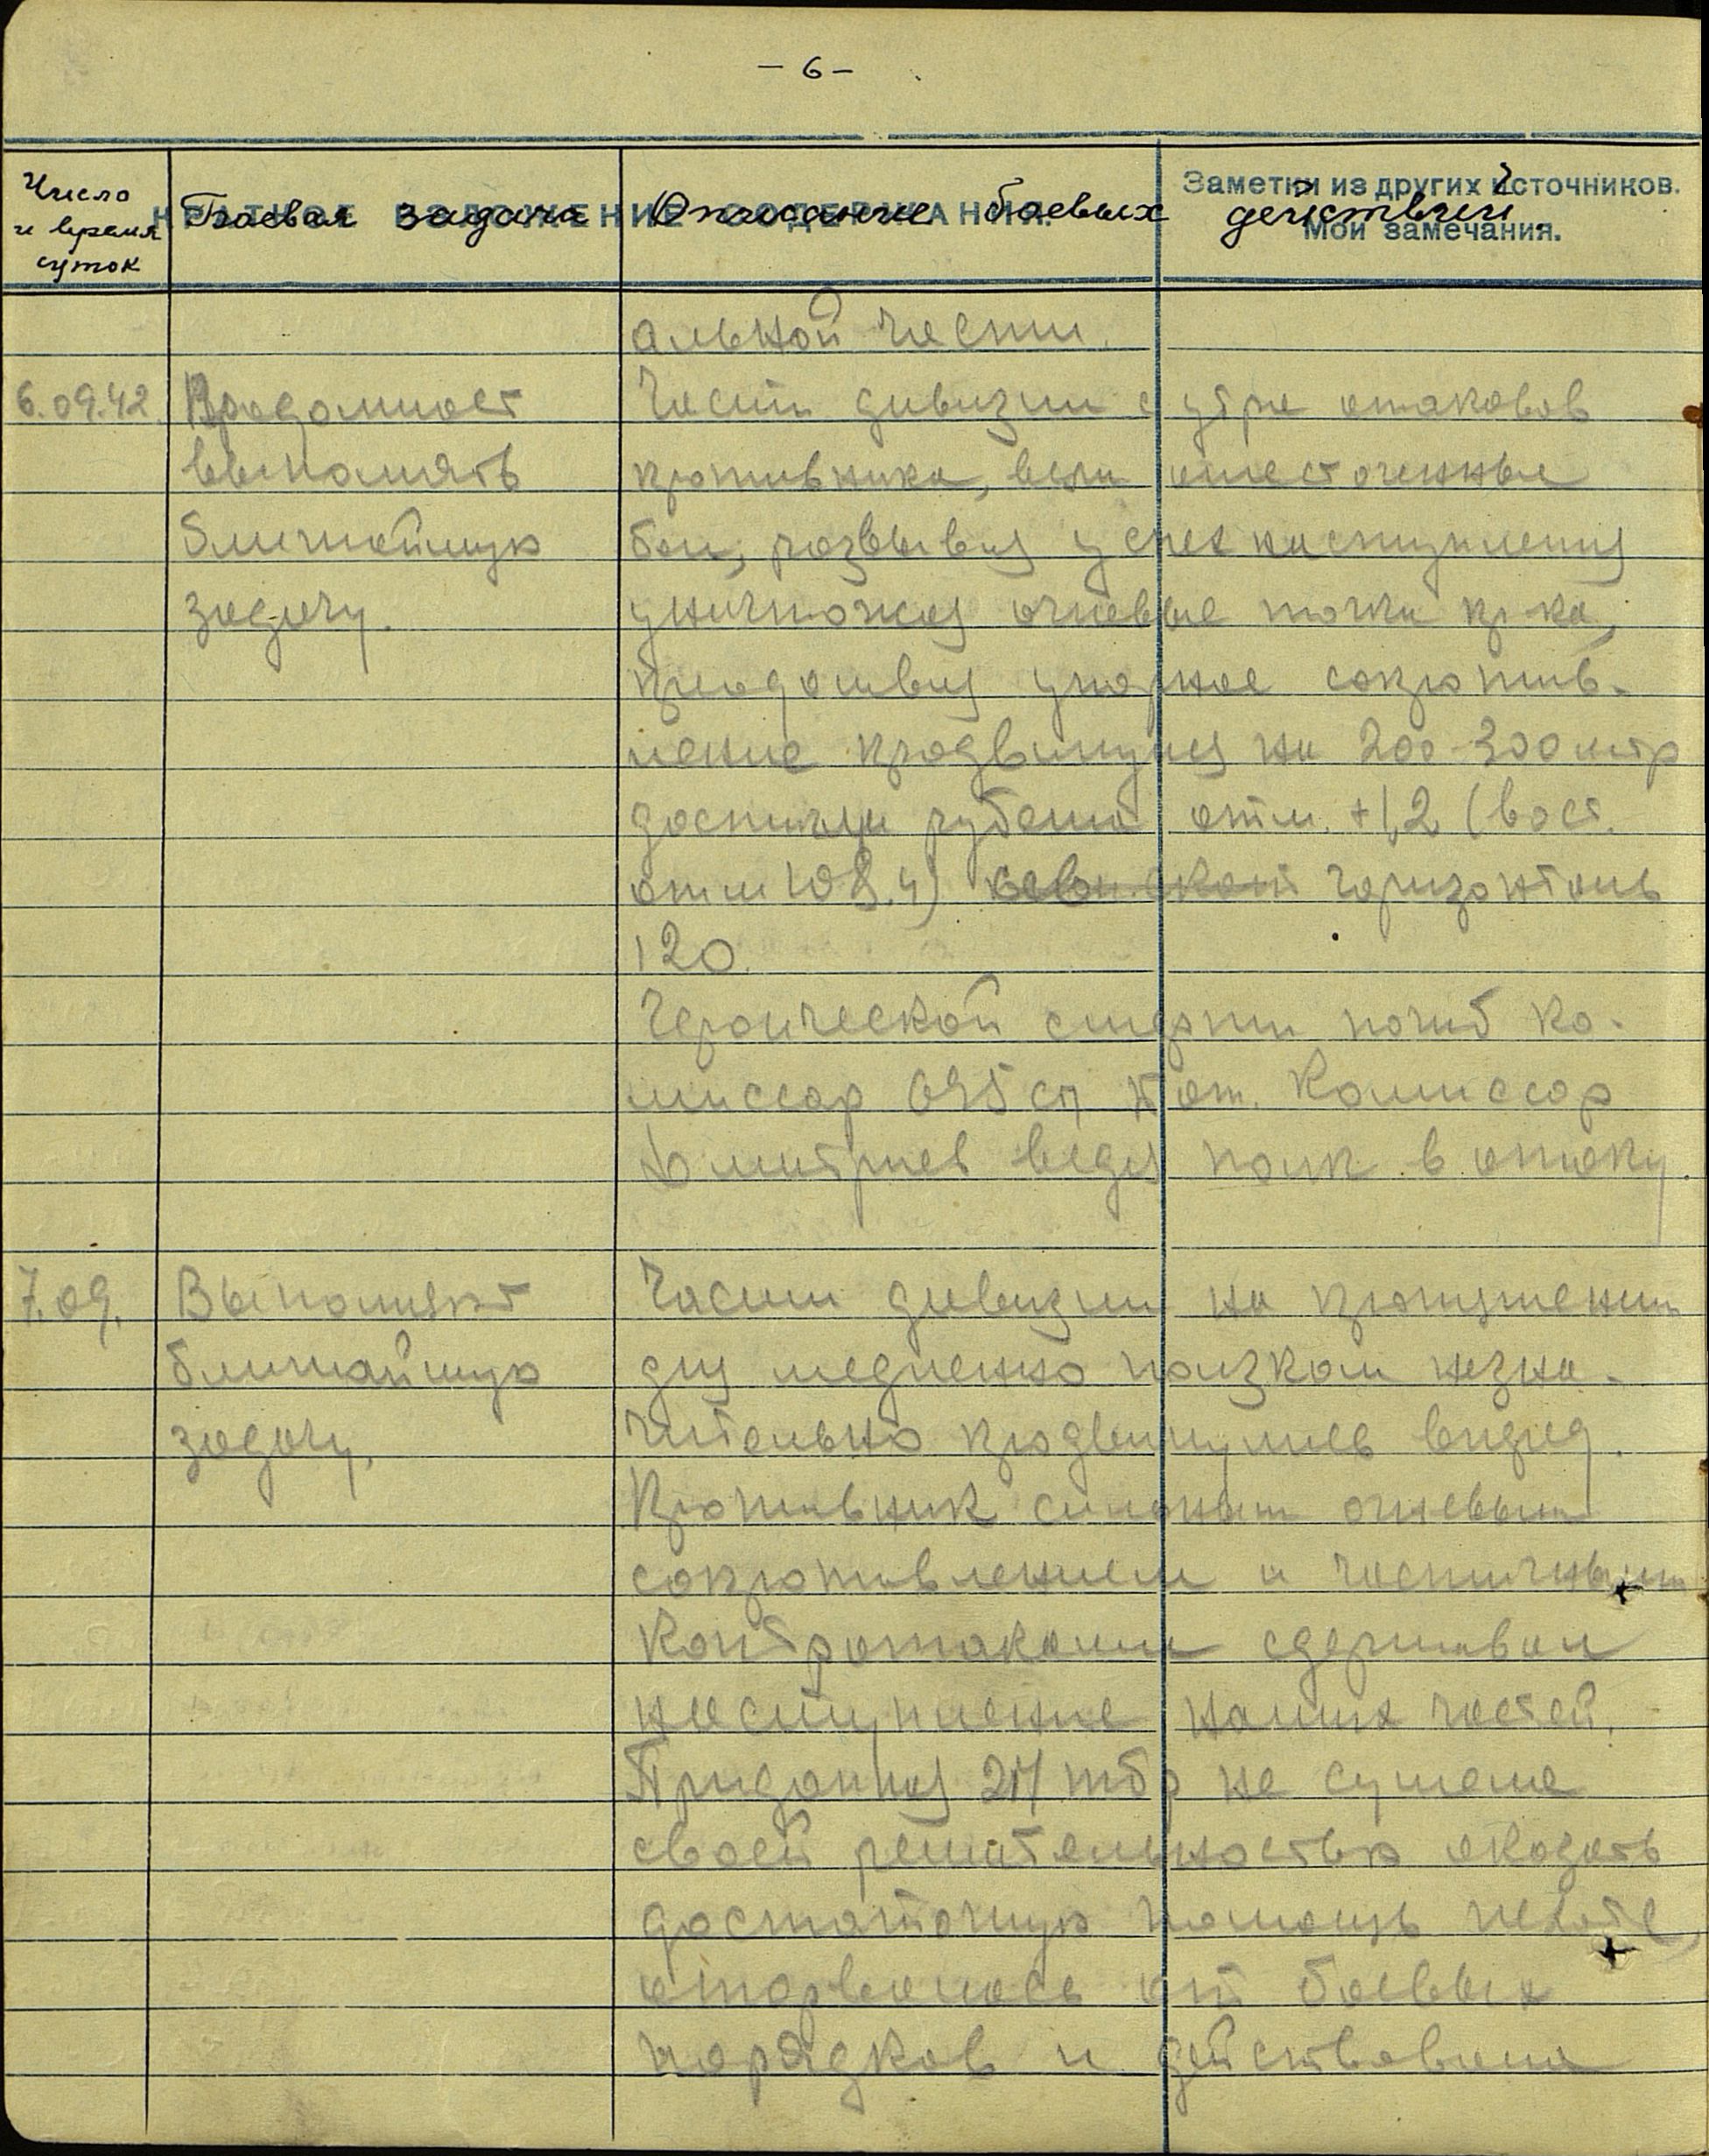 - 6 -
Число и время суток
Боевая задача
Описание боевых действий
КРАТКОЕ ИЗЛОЖЕНИЕ СОДЕРЖАНИЯ.
Заметки из других источников.
Мои замечания.
альной части.
6.09.42.
Продолжает
выполнять
ближайшую
задачу.
Части дивизии с утра атаковав
противника, вели ожесточенные
бои, развивая успех наступления
уничтожая огневые точки пр-ка,
преодолевая упорное сопротив-
ление продвинулись на 200-300 мтр
достигли рубежа отм. +1,2 (вост.
отм 108.4) горизонталь
120.
Героической смертью погиб ко-
миссар 695 сп бат. Комиссар
Дмитриев ведя полк в атаку.
7.09.
Выполняют
ближайшую
задачу.
Части дивизии на протяжении
дня медленно ползком незна-
чительно продвинулись вперед.
Противник сильным огневым
сопротивлением и частичными
контратаками сдерживал
наступление наших частей.
Приданная 217 тбр не сумела
своей решительностью оказать
достаточную помощь пехоте,
оторвалась от боевых
порядков и действовала